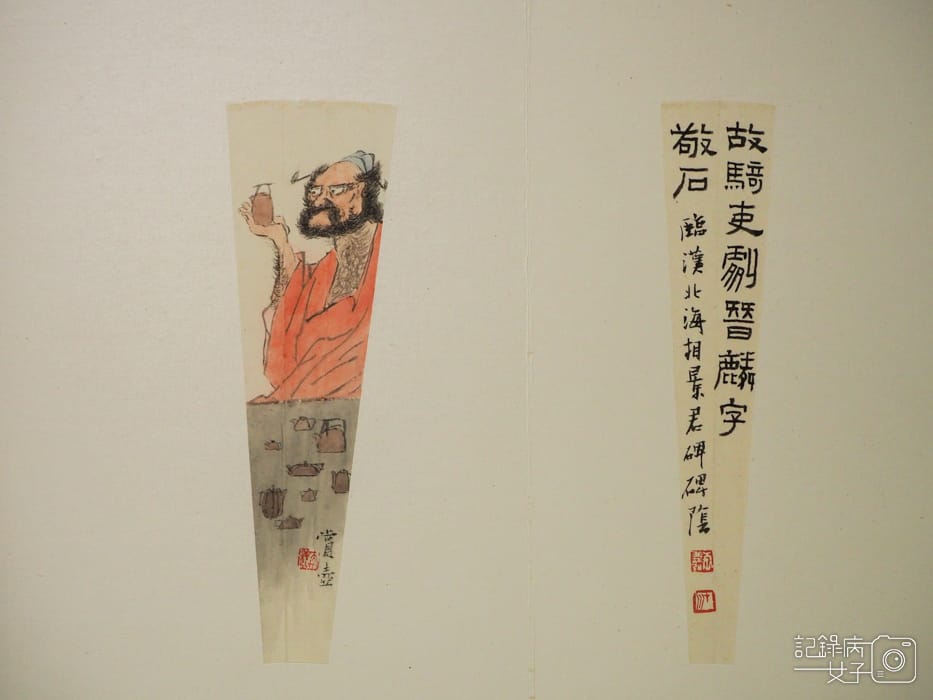 故騎吏劇晉麟字
敬石 臨漢北海相景君碑碑陰
賞壺
記錄病
女子